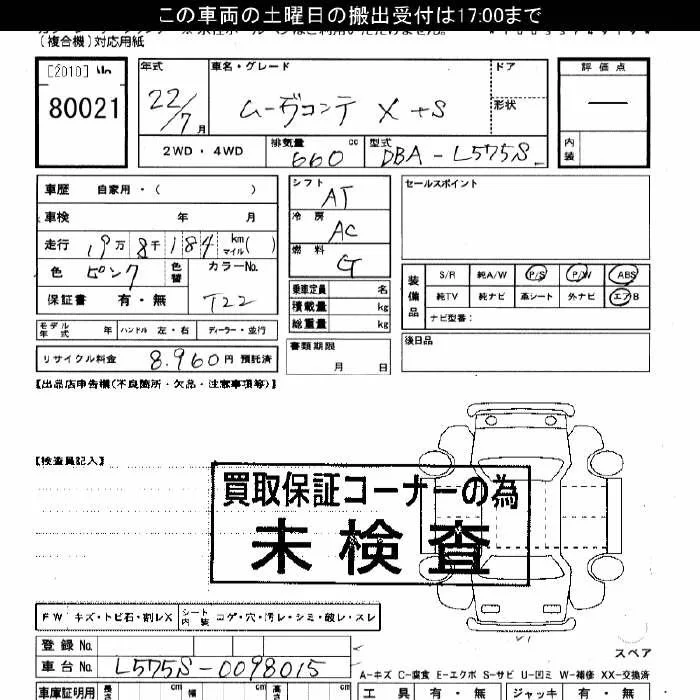 この車両の土曜日の搬出受付は17:00まで
(複合機)対応用紙
[2010]
80021
年式
22/7月
車名・グレード
ムーヴコンテ X+S
ドア
形状
評価点
—
内装
2WD・4WD
排気量
660 cc
型式
DBA-L575S
車歴 自家用・( )
車検 年 月
走行 19万8千184 km マイル( )
色 ピンク
色替
カラーNo.
T22
保証書 有・無
モデル年式 年
ハンドル 左・右
ディーラー・並行
リサイクル料金 8,960円 預託済
シフト
AT
冷房
AC
燃料
G
乗車定員 名
積載量 kg
総重量 kg
書類期限
月 日
セールスポイント
装備品
S/R 純A/W P/S P/W ABS
純TV 純ナビ 革シート 外ナビ エアB
ナビ型番:
後日品
【出品店申告欄(不良箇所・欠品・注意事項等)】
【検査員記入】
買取保証コーナーの為
未検査
FW キズ・トビ石・割レX
シート内装 コゲ・穴・汚レ・シミ・破レ・スレ
登録No.
車台No. L575S-0098015
スペア
A-キズ C-腐食 E-エクボ S-サビ U-凹ミ W-補修 XX-交換済
車庫証明用 長さ cm 幅 cm 高さ cm
工具 有・無 ジャッキ 有・無